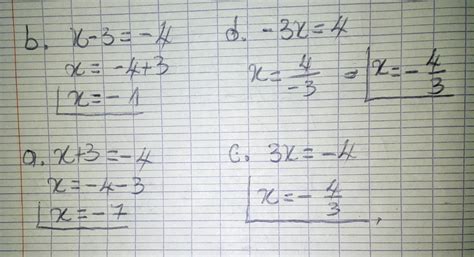 b. x-3=-4
x=-4+3
x=-1
d. -3x=4
x=4/-3 = x=-4/3
a. x+3=-4
x=-4-3
x=-7
c. 3x=-4
x=-4/3